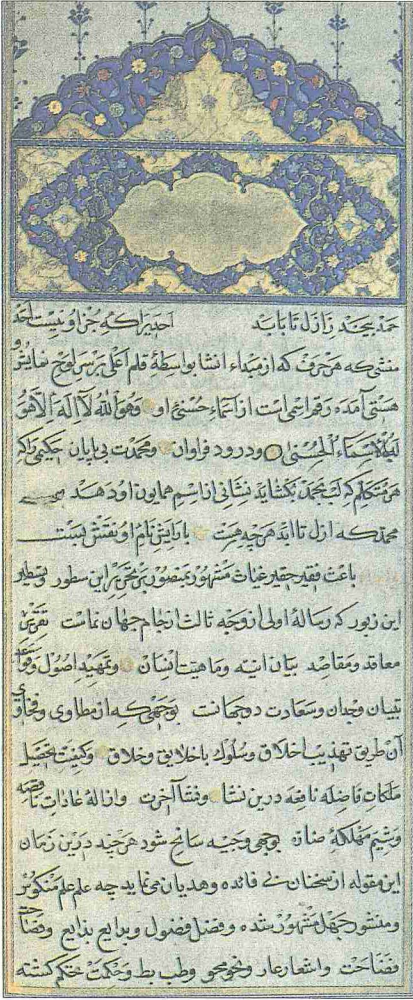 حمد بیحد ز ازل تا بابد احدیرا که جز او نیست احد
منشئی که هر حرف که از مبداء انشا بواسطهٔ قلم اعلی بر سر لوح نمایش
هستی آمده رقم اسمی است از اسماء حسنی او وهو الله لا اله الا هو
له الاسماء الحسنی و درود فراوان و محمدت بی پایان حکیمی را که
هر متکلم که لب بحمد بکشاید نشانی از اسم همایون او دهد
محمد که ازل تا ابد هر چه هست بارایش نام او نقش بست
باعث فقیر حقیر غیاث مشهور بمنصور بر تحریر این سطور و تسطیر
این زبور که رسالهٔ اولی از وجه ثالث از جام جهان نماست
معاقد و مقاصد بیان انیه و ماهیت انسان و تمهید اصول و قواعد
تبیان وجدان و سعادت دوجهانست بوجهی که از مطاوی و فحاوی
آن طریق تهذیب اخلاق و سلوک باخلایق و خلاق و کیفیت تحصیل
ملکات فاضله نافعه درین نشا و نشا آخرت و ازالهٔ عادات ناقصه
و شیم مهلکهٔ ضاره بوجهی وجیه سانح شود هر چند درین زمان
این مقوله از سخنان بی فائده و هدیان می نماید چه علم علم منکوس
و منشور جهل مشهور شده و فضل فضول و بدایع بذایع و فصاحت
فضاحت و اشعار عار و نحو محو و طب بط و حکمت ختکم کشته